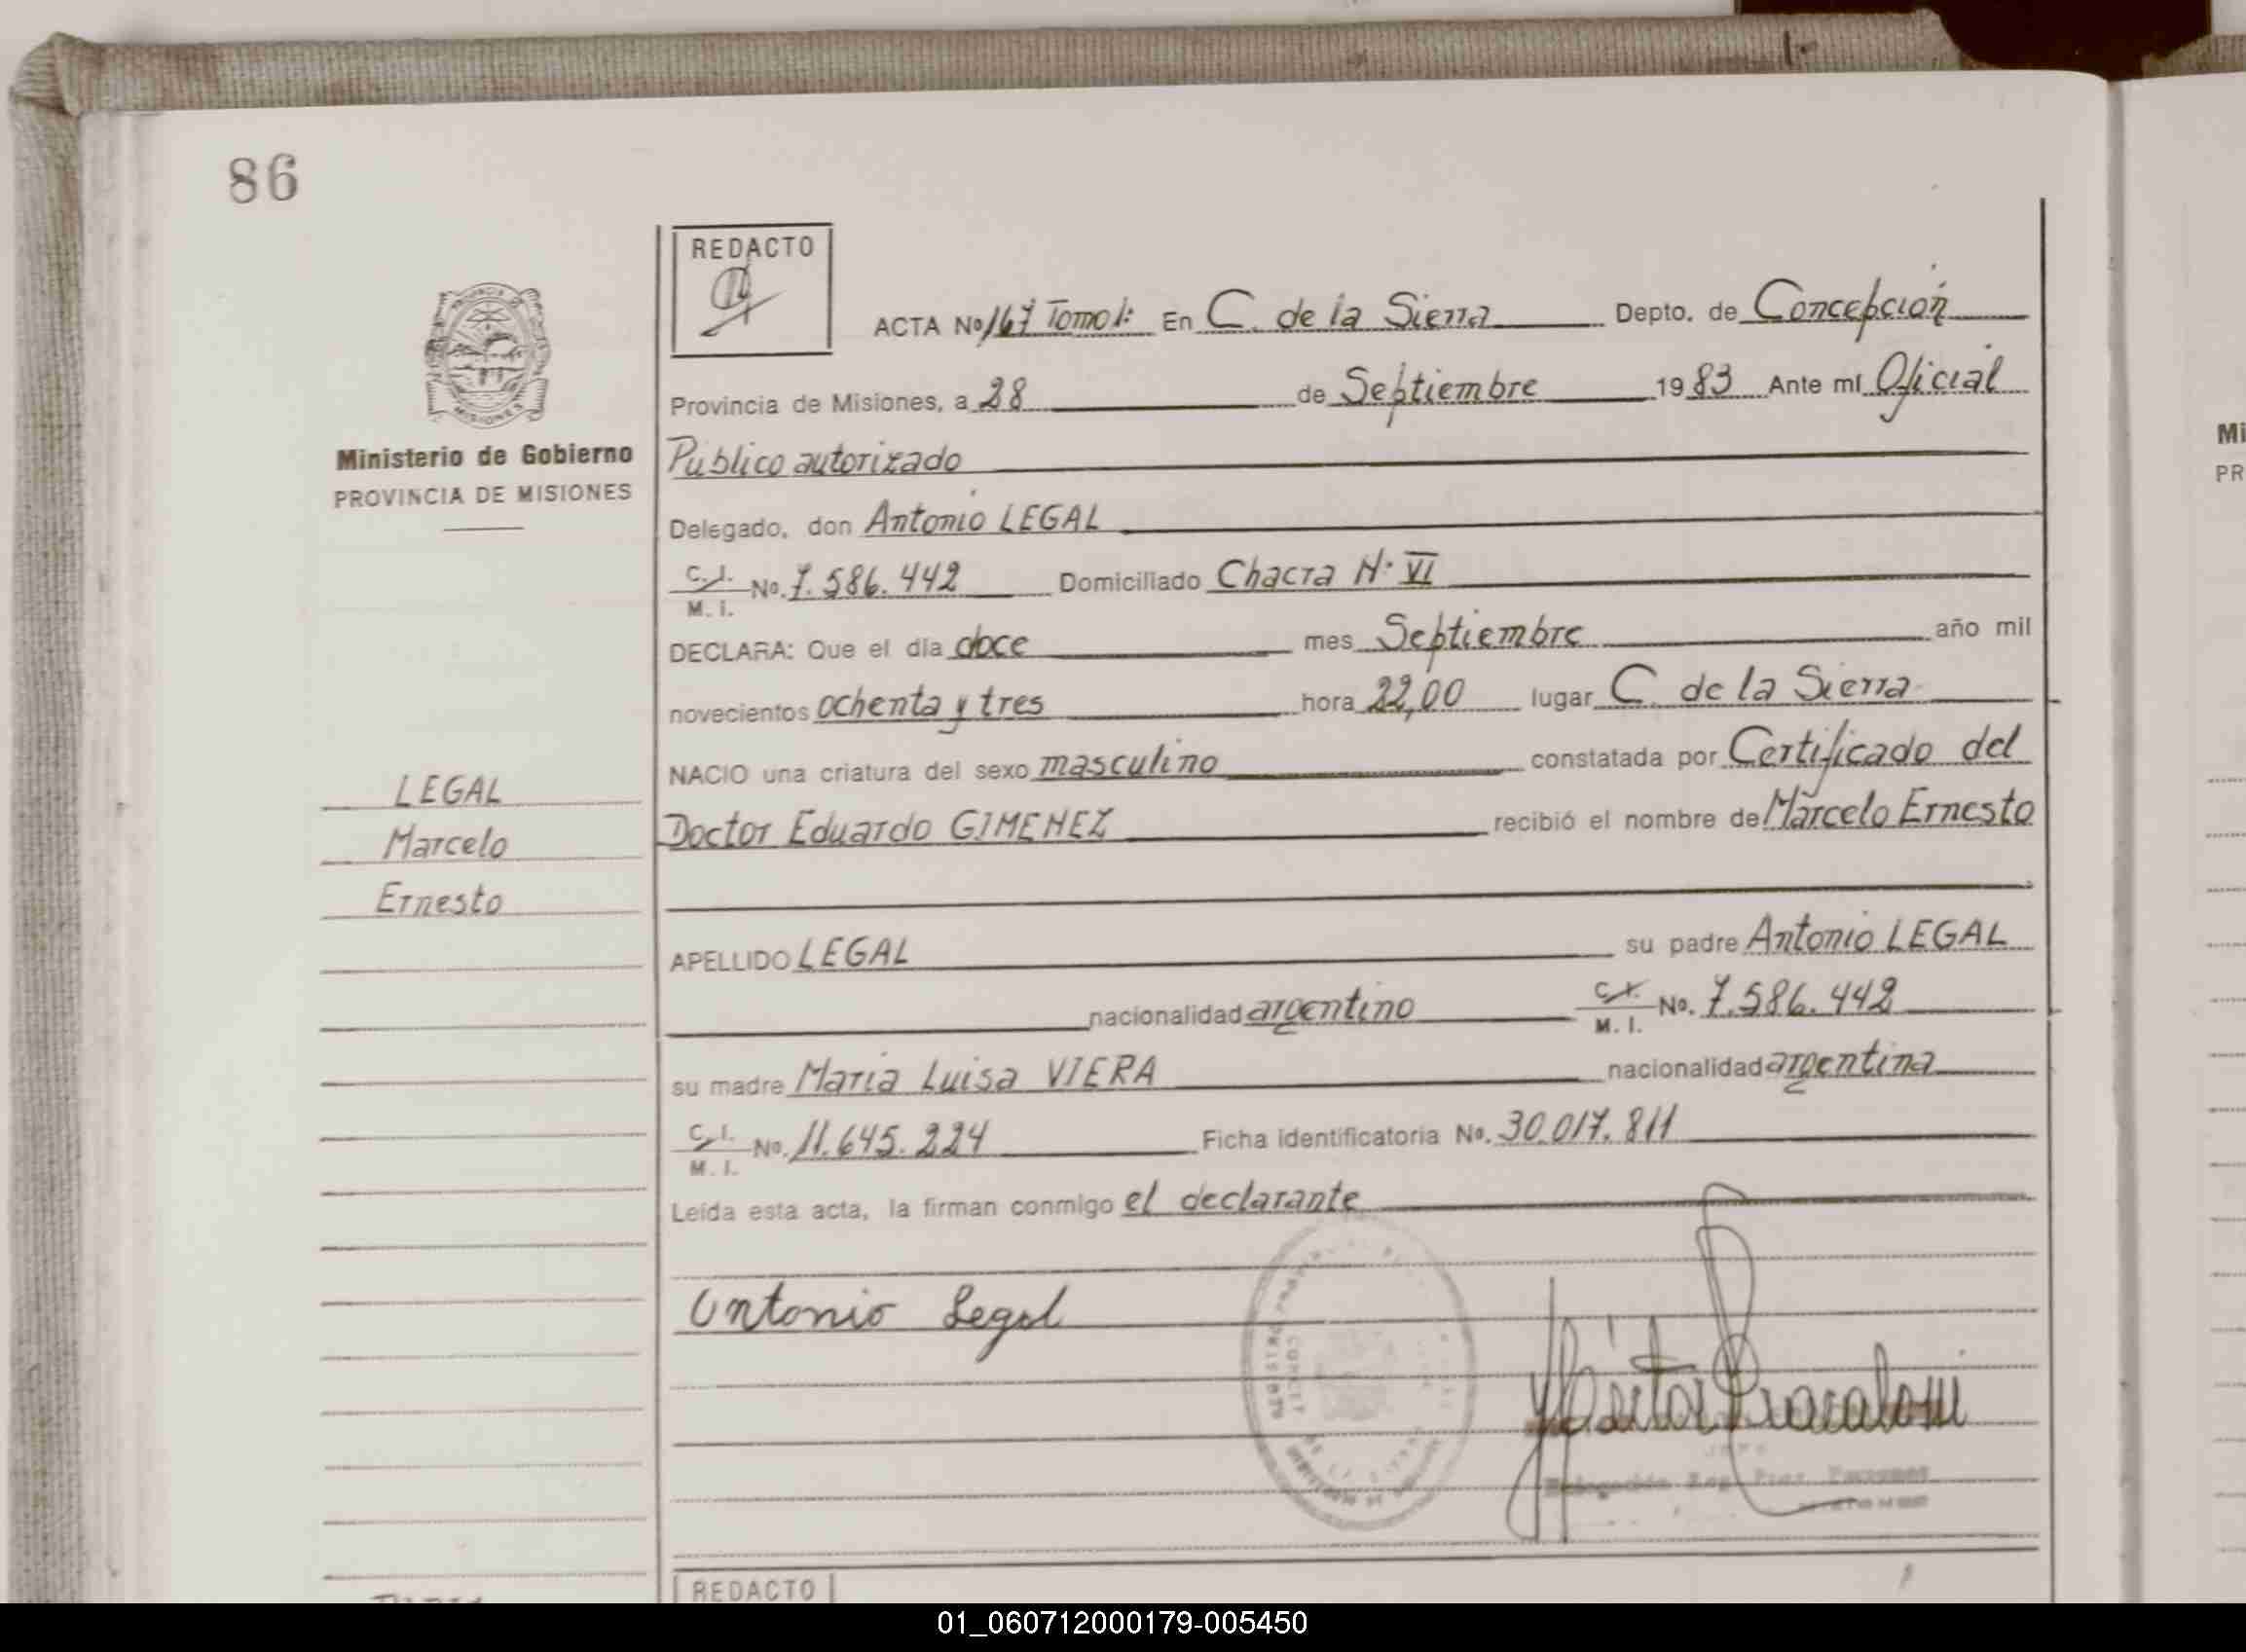 86
REDACTO
ACTA No 167 Tomo 1: En C. de la Sierra Depto. de Concepción
Provincia de Misiones, a 28 de Septiembre 1983 Ante mí Oficial
Ministerio de Gobierno
PROVINCIA DE MISIONES
Público autorizado
Delegado, don Antonio LEGAL
C. I. M. I. No. 7.586.442 Domiciliado Chacra N° VI
DECLARA: Que el día doce mes Septiembre año mil
novecientos ochenta y tres hora 22,00 lugar C. de la Sierra
NACIO una criatura del sexo masculino constatada por Certificado del
Doctor Eduardo GIMENEZ recibió el nombre de Marcelo Ernesto
LEGAL
Marcelo
Ernesto
APELLIDO LEGAL su padre Antonio LEGAL
nacionalidad argentino C. I. M. I. No. 7.586.442
su madre Maria Luisa VIERA nacionalidad argentina
C. I. M. I. No. 11.645.224 Ficha identificatoria No. 30.017.811
Leída esta acta, la firman conmigo el declarante
Antonio Legal
REDACTO
Mi
PR
01_060712000179-005450